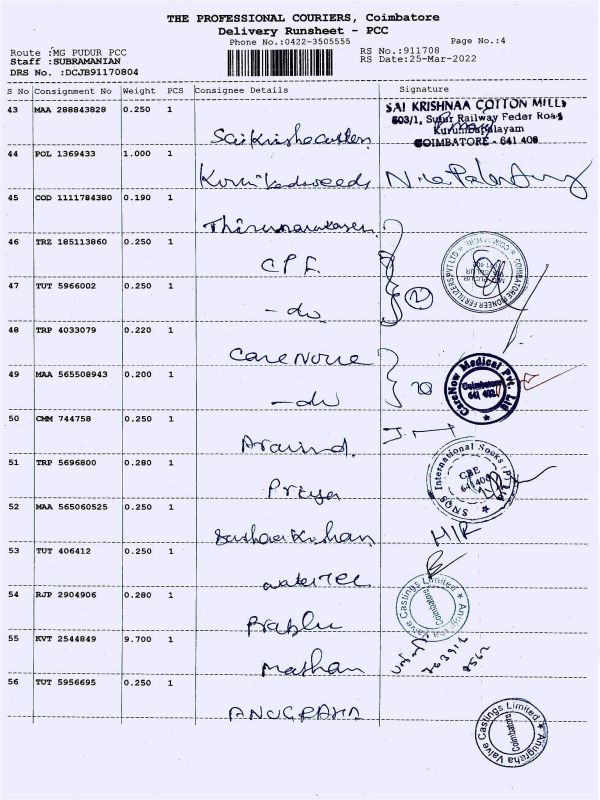 THE PROFESSIONAL COURIERS, Coimbatore
Delivery Runsheet - PCC
Phone No.:0422-3505555 Page No.:4
Route :MG PUDUR PCC RS No.:911708
Staff :SUBRAMANIAN RS Date:25-Mar-2022
DRS No. :DCJB91170804
S No Consignment No Weight PCS Consignee Details Signature
43 MAA 288843828 0.250 1
SAI KRISHNAA COTTON MILLS
603/1, Sulur Railway Feder Road
Kurumbapalayam
COIMBATORE - 641 406
44 POL 1369433 1.000 1
45 COD 1111784380 0.190 1
46 TRZ 185113860 0.250 1
CPF
47 TUT 5966002 0.250 1
-do
48 TRP 4033079 0.220 1
Care Nove
49 MAA 565508943 0.200 1
-do
CareNow Medical Pvt. Ltd
Coimbatore
641 402
50 CMM 744758 0.250 1
Aravind.
51 TRP 5696800 0.280 1
Priya
SNQS International Socks (P) Ltd
CBE
52 MAA 565060525 0.250 1
53 TUT 406412 0.250 1
54 RJP 2904906 0.280 1
Prablu
Anugraha Valve Castings Limited
Coimbatore
55 KVT 2544849 9.700 1
Mathan
56 TUT 5956695 0.250 1
ANUGRAHA
Anugraha Valve Castings Limited
Coimbatore